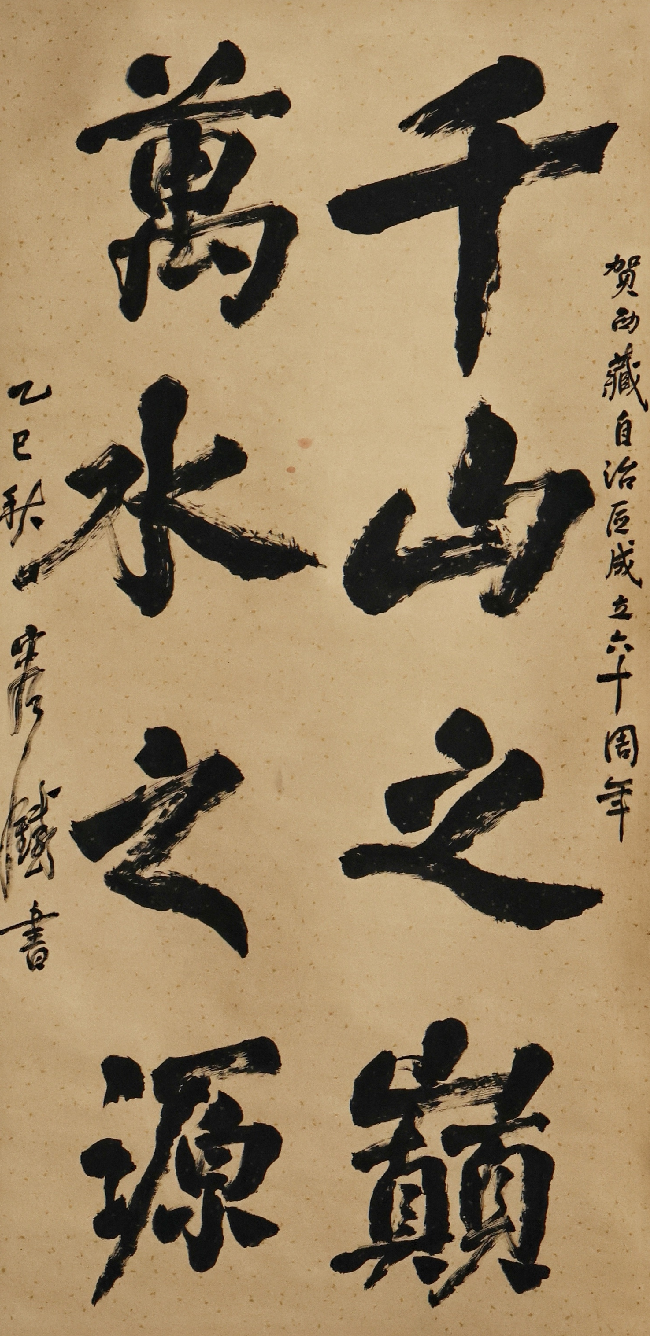 贺西藏自治区成立六十周年
千山之巅
萬水之源
乙巳秋
書